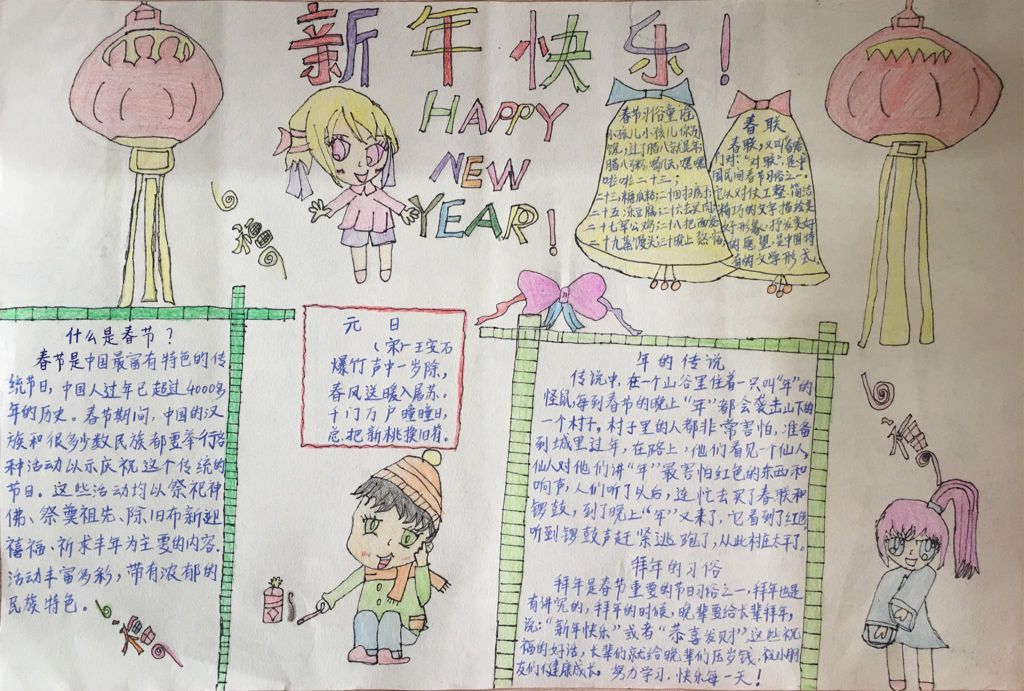 新年快乐!
HAPPY
NEW
YEAR!
春节习俗童谣
小孩儿小孩儿你别
馋,过了腊八就是年;
腊八粥,喝几天,哩哩
啦啦二十三;
二十三,糖瓜粘;二十四扫房子;
二十五,冻豆腐;二十六去买肉;
二十七宰公鸡;二十八把面发;
二十九蒸馒头;三十晚上熬一宿
春联
春联,又叫"春贴"
门对","对联",是中
国民间春节习俗之一.
它以对仗工整、简洁
精巧的文字描绘美
好形象,抒发美好
的愿望,是中国特
有的文学形式.
福
什么是春节?
春节是中国最富有特色的传
统节日,中国人过年已超过4000多
年的历史。春节期间,中国的汉
族和很多少数民族都要举行各
种活动以示庆祝这个传统的
节日。这些活动均以祭祀神
佛、祭奠祖先、除旧布新迎
禧福、祈求丰年为主要的内容.
活动丰富多彩,带有浓郁的
民族特色。
福
元日
(宋)王安石
爆竹声中一岁除,
春风送暖入屠苏.
千门万户曈曈日,
总把新桃换旧符.
年的传说
传说中,在一个山谷里住着一只叫"年"的
怪鼠,每到春节的晚上"年"都会袭击山下的
一个村子。村子里的人都非常害怕,准备
到城里过年,在路上,他们看见一个仙人,
仙人对他们讲"年"最害怕红色的东西和
响声,人们听了以后,连忙去买了春联和
锣鼓,到了晚上"年"又来了,它看到了红色
听到锣鼓声赶紧逃跑了,从此村庄太平了.
拜年的习俗
拜年是春节重要的节日习俗之一,拜年也是
有讲究的,拜年的时候,晚辈要给长辈拜年,
说:"新年快乐"或者"恭喜发财"这些祝
福的好话,长辈们就给晚辈们压岁钱,祝小朋
友们健康成长。努力学习,快乐每一天!
福